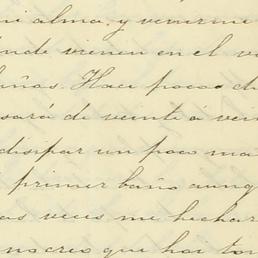 mi alma, y venirme
onde vienen en el v
bliñas. Hace pocos di
sará de veinte á vein
disipar un poco ma
primer baño aunq
as veces me hechar
no creo que hai ton